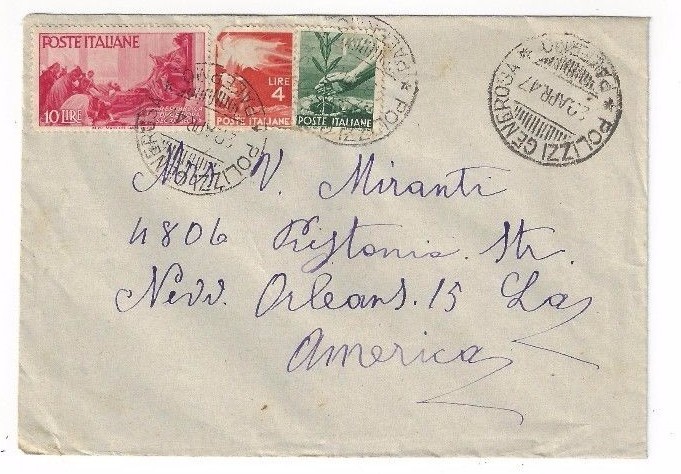 POSTE ITALIANE
10 LIRE
LIRE
4
POSTE ITALIANE
POSTE ITALIANE
POLIZZI GENEROSA * PALERMO *
22 APR. 47
V. Miranti
4806 Pistonia. Str.
New. Orleans. 15 La
America